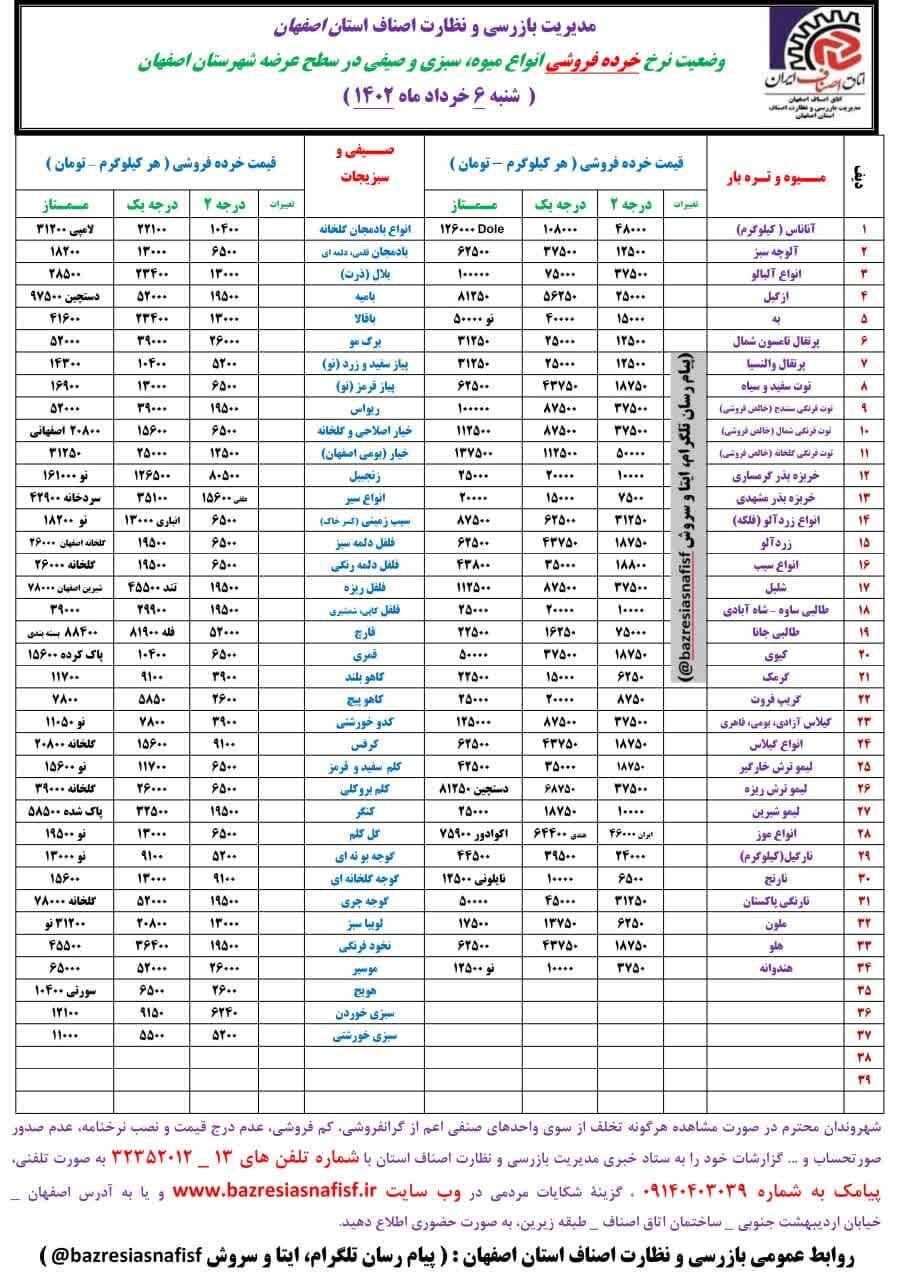 اتاق اصناف ایران
اتاق اصناف اصفهان
مدیریت بازرسی و نظارت اصناف
استان اصفهان
مدیریت بازرسی و نظارت اصناف استان اصفهان
وضعیت نرخ خرده فروشی انواع میوه، سبزی و صیفی در سطح عرضه شهرستان اصفهان
( شنبه ۶ خرداد ماه ۱۴۰۲ )
دیف میوه و تره بار قیمت خرده فروشی ( هر کیلوگرم – تومان ) صیفی و سبزیجات قیمت خرده فروشی ( هر کیلوگرم - تومان )
تغییرات درجه ۲ درجه یک ممتاز تغییرات درجه ۲ درجه یک ممتاز
۱ آناناس ( کیلوگرم) ۴۸۰۰۰ ۱۰۸۰۰۰ Dole ۱۲۶۰۰۰ انواع بادمجان گلخانه ۱۰۴۰۰ ۲۲۱۰۰ لامپی ۳۱۲۰۰
۲ آلوچه سبز ۱۲۵۰۰ ۳۷۵۰۰ ۶۲۵۰۰ بادمجان قلمی، دلمه ای ۶۵۰۰ ۱۳۰۰۰ ۱۸۲۰۰
۳ انواع آلبالو ۳۷۵۰۰ ۷۵۰۰۰ ۱۰۰۰۰۰ بلال (ذرت) ۱۳۰۰۰ ۲۳۴۰۰ ۲۸۵۰۰
۴ ازگیل ۲۵۰۰۰ ۵۶۲۵۰ ۸۱۲۵۰ بامیه ۱۹۵۰۰ ۵۲۰۰۰ دستچین ۹۷۵۰۰
۵ به ۱۵۰۰۰ ۴۰۰۰۰ نو ۵۰۰۰۰ باقالا ۱۳۰۰۰ ۲۳۴۰۰ ۴۱۶۰۰
۶ پرتقال تامسون شمال ۱۲۵۰۰ ۲۵۰۰۰ ۳۱۲۵۰ برگ مو ۲۶۰۰۰ ۳۹۰۰۰ ۵۲۰۰۰
۷ پرتقال والنسیا ۱۲۵۰۰ ۲۵۰۰۰ ۳۱۲۵۰ پیاز سفید و زرد (نو) ۵۲۰۰ ۱۰۴۰۰ ۱۴۳۰۰
۸ توت سفید و سیاه ۱۸۷۵۰ ۴۳۷۵۰ ۶۲۵۰۰ پیاز قرمز (نو) ۶۵۰۰ ۱۳۰۰۰ ۱۶۹۰۰
۹ توت فرنگی سنندج (خالص فروشی) ۳۷۵۰۰ ۸۷۵۰۰ ۱۰۰۰۰۰ ریواس ۱۹۵۰۰ ۳۹۰۰۰ ۵۲۰۰۰
۱۰ توت فرنگی شمال (خالص فروشی) ۳۷۵۰۰ ۸۷۵۰۰ ۱۱۲۵۰۰ خیار اصلاحی و گلخانه ۶۵۰۰ ۱۵۶۰۰ ۲۰۸۰۰ اصفهانی
۱۱ توت فرنگی گلخانه (خالص فروشی) ۵۰۰۰۰ ۱۱۲۵۰۰ ۱۳۷۵۰۰ خیار (بومی اصفهان) ۱۲۵۰۰ ۲۵۰۰۰ ۳۱۲۵۰
۱۲ خربزه بذر گرمساری ۱۰۰۰۰ ۲۰۰۰۰ ۲۵۰۰۰ زنجبیل ۸۰۵۰۰ ۱۲۶۵۰۰ نو ۱۶۱۰۰۰
۱۳ خربزه بذر مشهدی ۷۵۰۰ ۱۵۰۰۰ ۲۰۰۰۰ انواع سیر ۱۵۶۰۰ ۳۵۱۰۰ سردخانه ۴۲۹۰۰
۱۴ انواع زردآلو (فلکه) ۳۱۲۵۰ ۶۲۵۰۰ ۸۷۵۰۰ سیب زمینی (کسر خاک) ۶۵۰۰ انباری ۱۳۰۰۰ نو ۱۸۲۰۰
۱۵ زردآلو ۱۸۷۵۰ ۴۳۷۵۰ ۶۲۵۰۰ فلفل دلمه سبز ۶۵۰۰ ۱۹۵۰۰ گلخانه اصفهان ۲۶۰۰۰
۱۶ انواع سیب ۱۸۸۰۰ ۳۵۰۰۰ ۴۳۸۰۰ فلفل دلمه رنگی ۶۵۰۰ ۱۹۵۰۰ گلخانه ۲۶۰۰۰
۱۷ شلیل ۳۷۵۰۰ ۸۷۵۰۰ ۱۱۲۵۰۰ فلفل ریزه ۱۹۵۰۰ تند ۴۵۵۰۰ شیرین اصفهان ۷۸۰۰۰
۱۸ طالبی ساوه - شاه آبادی ۱۰۰۰۰ ۲۰۰۰۰ ۲۵۰۰۰ فلفل کبابی، شمشیری ۱۹۵۰۰ ۲۹۹۰۰ ۳۹۰۰۰
۱۹ طالبی جانا ۷۵۰۰۰ ۱۶۲۵۰ ۲۲۵۰۰ قارچ ۵۲۰۰۰ فله ۸۱۹۰۰ ۸۸۴۰۰ بسته بندی
۲۰ کیوی ۱۸۷۵۰ ۳۷۵۰۰ ۵۰۰۰۰ قمری ۶۵۰۰ ۱۰۴۰۰ پاک کرده ۱۵۶۰۰
۲۱ گرمک ۶۲۵۰ ۱۵۰۰۰ ۲۲۵۰۰ کاهو بلند ۳۹۰۰ ۹۱۰۰ ۱۱۷۰۰
۲۲ گریپ فروت ۸۷۵۰ ۲۰۰۰۰ ۲۵۰۰۰ کاهو پیچ ۲۶۰۰ ۵۸۵۰ ۷۸۰۰
۲۳ گیلاس آزادی، بومی، قاهری ۳۷۵۰۰ ۸۷۵۰۰ ۱۲۵۰۰۰ کدو خورشتی ۳۹۰۰ ۷۸۰۰ نو ۱۱۰۵۰
۲۴ انواع گیلاس ۱۸۷۵۰ ۴۳۷۵۰ ۶۲۵۰۰ کرفس ۹۱۰۰ ۱۵۶۰۰ گلخانه ۲۰۸۰۰
۲۵ لیمو ترش خارگیر ۱۸۷۵۰ ۳۵۰۰۰ ۴۲۵۰۰ کلم سفید و قرمز ۶۵۰۰ ۱۱۷۰۰ نو ۱۵۶۰۰
۲۶ لیمو ترش ریزه ۳۷۵۰۰ ۶۸۷۵۰ دستچین ۸۱۲۵۰ کلم بروکلی ۶۵۰۰ ۲۶۰۰۰ گلخانه ۳۹۰۰۰
۲۷ لیمو شیرین ۱۰۰۰۰ ۱۸۷۵۰ ۲۵۰۰۰ کنگر ۱۹۵۰۰ ۳۲۵۰۰ پاک شده ۵۸۵۰۰
۲۸ انواع موز ایران ۴۶۰۰۰ هندی ۶۴۴۰۰ اکوادور ۷۵۹۰۰ گل کلم ۶۵۰۰ ۱۳۰۰۰ نو ۱۹۵۰۰
۲۹ نارگیل(کیلوگرم) ۲۴۰۰۰ ۳۹۵۰۰ ۴۴۵۰۰ گوجه بوته ای ۵۲۰۰ ۹۱۰۰ نو ۱۳۰۰۰
۳۰ نارنج ۶۵۰۰ ۱۰۰۰۰ نایلونی ۱۲۵۰۰ گوجه گلخانه ای ۹۱۰۰ ۱۳۰۰۰ ۱۵۶۰۰
۳۱ نارنگی پاکستان ۳۱۲۵۰ ۴۵۰۰۰ ۵۰۰۰۰ گوجه چری ۱۹۵۰۰ ۵۲۰۰۰ گلخانه ۷۸۰۰۰
۳۲ ملون ۶۲۵۰ ۱۳۷۵۰ ۱۷۵۰۰ لوبیا سبز ۱۳۰۰۰ ۲۰۸۰۰ ۳۱۲۰۰ نو
۳۳ هلو ۱۸۷۵۰ ۴۳۷۵۰ ۶۲۵۰۰ نخود فرنگی ۱۹۵۰۰ ۳۶۴۰۰ ۴۵۵۰۰
۳۴ هندوانه ۳۷۵۰ ۱۰۰۰۰ نو ۱۲۵۰۰ موسیر ۲۶۰۰۰ ۵۲۰۰۰ ۶۵۰۰۰
۳۵ هویج ۲۶۰۰ ۶۵۰۰ سورتی ۱۰۴۰۰
۳۶ سبزی خوردن ۶۲۴۰ ۹۱۵۰ ۱۲۱۰۰
۳۷ سبزی خورشتی ۵۲۰۰ ۵۵۰۰ ۱۱۰۰۰
۳۸
۳۹
(پیام رسان تلگرام، ایتا و سروش bazresiasnafisf@)
شهروندان محترم در صورت مشاهده هرگونه تخلف از سوی واحدهای صنفی اعم از گرانفروشی، کم فروشی، عدم درج قیمت و نصب نرخنامه، عدم صدور
صورتحساب و ... گزارشات خود را به ستاد خبری مدیریت بازرسی و نظارت اصناف استان با شماره تلفن های ۱۳ _ ۳۲۳۵۲۰۱۲ به صورت تلفنی،
پیامک به شماره ۰۹۱۴۰۴۰۳۰۳۹ ، گزینهٔ شکایات مردمی در وب سایت www.bazresiasnafisf.ir و یا به آدرس اصفهان _
خیابان اردیبهشت جنوبی _ ساختمان اتاق اصناف _ طبقه زیرین، به صورت حضوری اطلاع دهید.
روابط عمومی بازرسی و نظارت اصناف استان اصفهان : ( پیام رسان تلگرام، ایتا و سروش bazresiasnafisf@ )